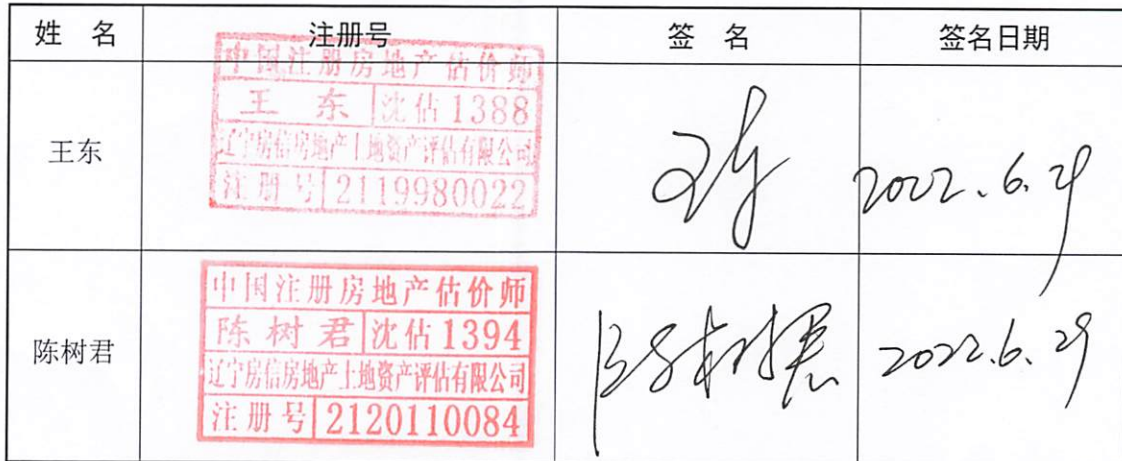 姓 名 注册号 签 名 签名日期
王东
中国注册房地产估价师
王 东 沈估 1388
辽宁房信房地产土地资产评估有限公司
注册号 2119980022
王东 2022.6.29
陈树君
中国注册房地产估价师
陈树君 沈估 1394
辽宁房信房地产土地资产评估有限公司
注册号 2120110084
陈树君 2022.6.29